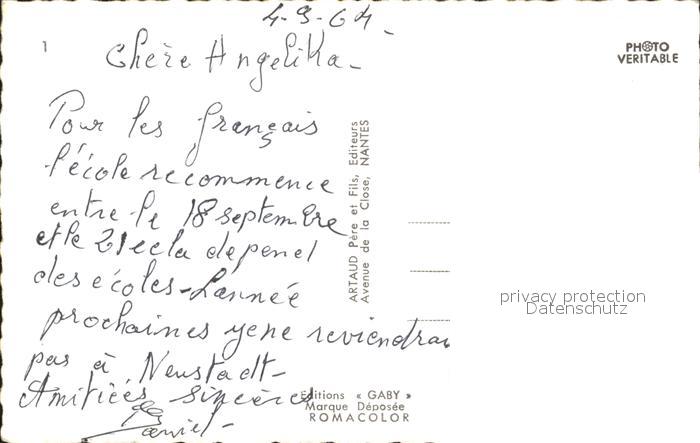 4-9-64-
1
Chère Angelika-
PHOTO
VERITABLE
Pour les français
l'école recommence
entre le 18 septembre
et le 21 cela depend
des écoles-L'année
prochaines je ne reviendrai
pas à Neustadt-
Amitiées sincères
Daniel-
ARTAUD Père et Fils, Editeurs
Avenue de la Close, NANTES
privacy protection
Datenschutz
Editions « GABY »
Marque Déposée
ROMACOLOR